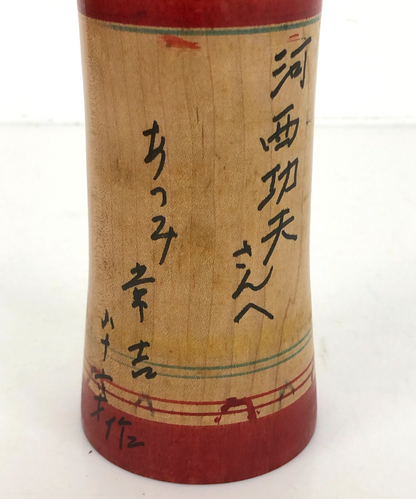 河西功夫さんへ
あつみ 常吉
八十才作